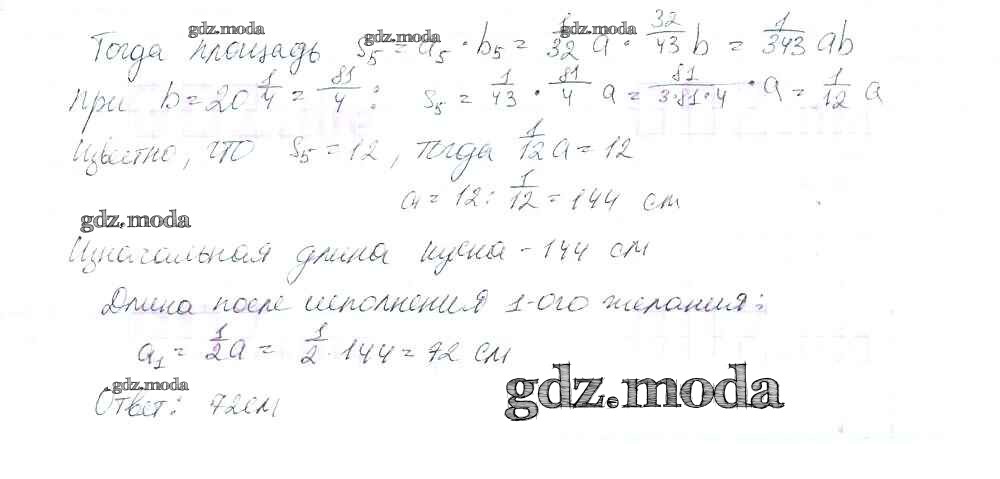 gdz.moda
Тогда площадь S₅ = a₅ · b₅ = 1/32 a · 32/43 b = 1/343 ab
gdz.moda
gdz.moda
gdz.moda
при b = 20 1/4 = 81/4 : S₅ = 1/43 · 81/4 a = 81/3·81·4 · a = 1/12 a
Известно, что S₅ = 12, тогда 1/12 a = 12
a = 12 : 1/12 = 144 см
gdz.moda
Изначальная длина куска - 144 см
Длина после исполнения 1-ого желания:
a₁ = 1/2 a = 1/2 · 144 = 72 см
gdz.moda
Ответ: 72см
gdz.moda